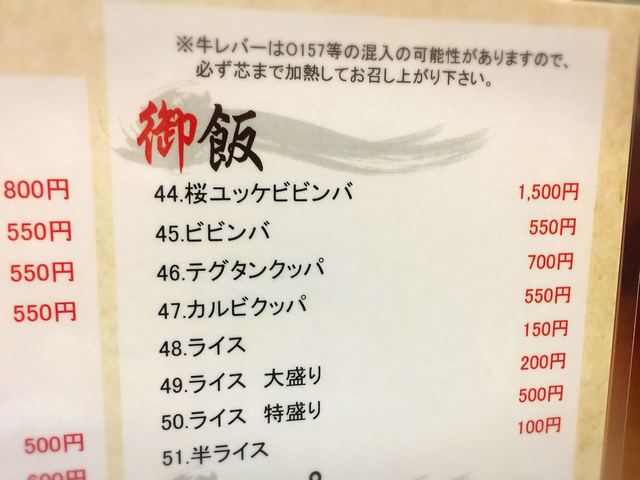 ※牛レバーはO157等の混入の可能性がありますので、
必ず芯まで加熱してお召し上がり下さい。
御飯
44.桜ユッケビビンバ 1,500円
45.ビビンバ 550円
46.テグタンクッパ 700円
47.カルビクッパ 550円
48.ライス 150円
49.ライス 大盛り 200円
50.ライス 特盛り 500円
51.半ライス 100円
800円
550円
550円
550円
500円